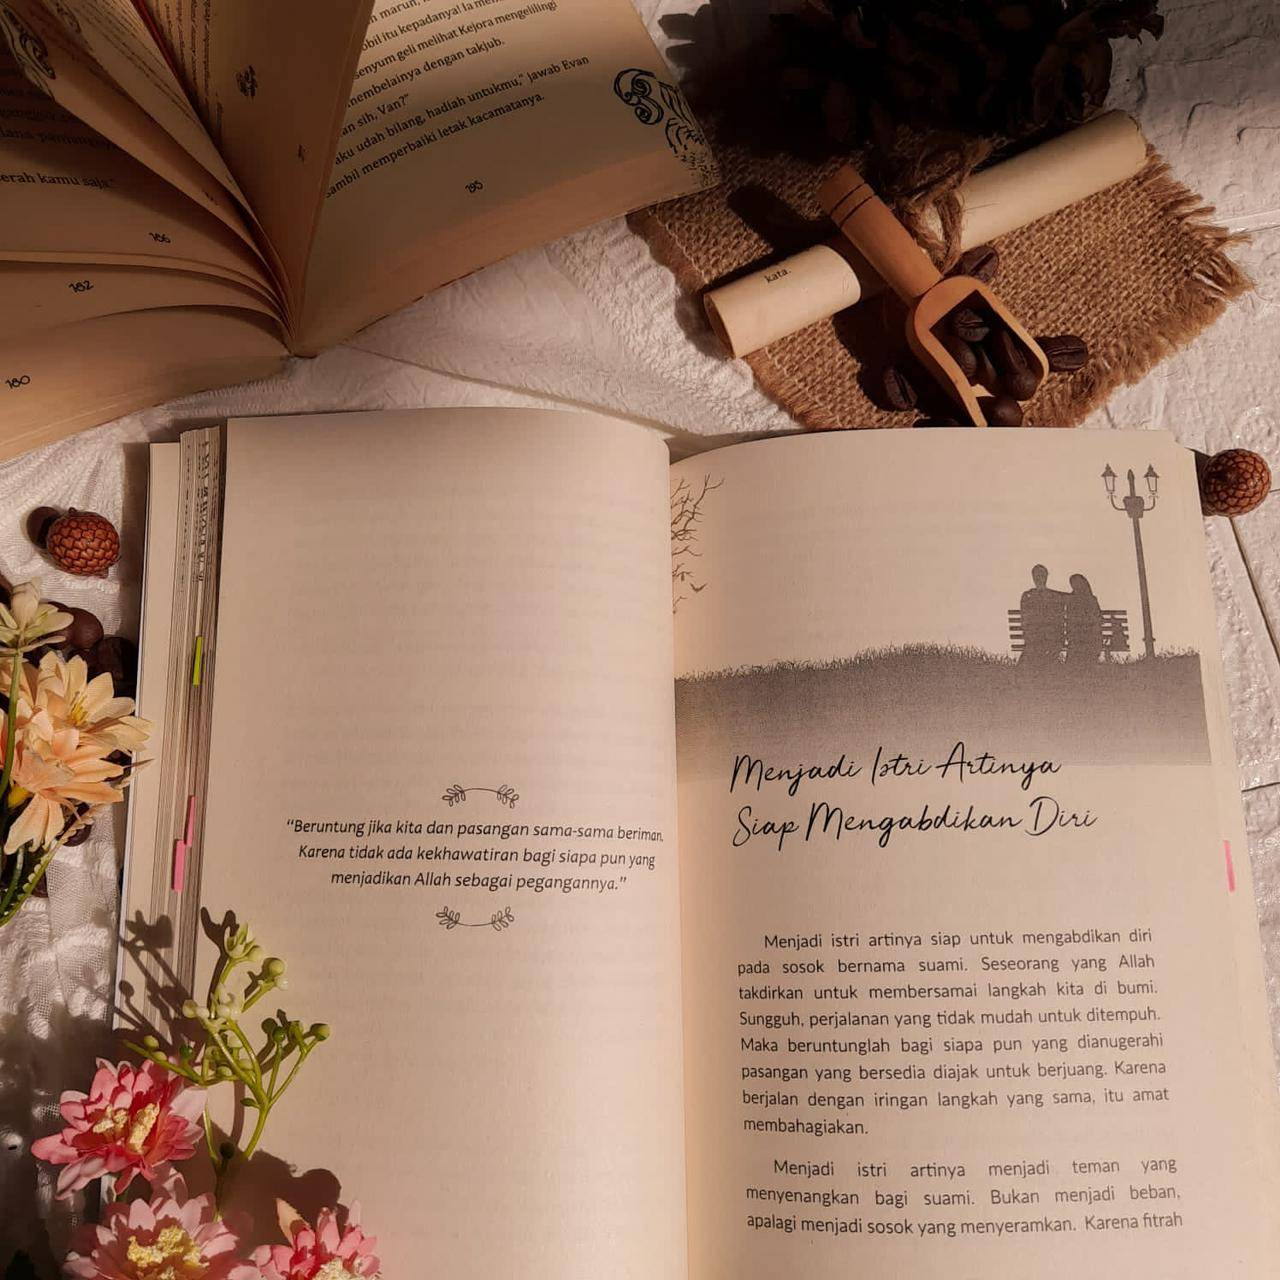 senyum geli melihat Kejora mengelilingi
membelainya dengan takjub.
sih, Van?"
aku udah bilang, hadiah untukmu," jawab Evan
sambil memperbaiki letak kacamatanya.
195
erah kamu saja."
186
182
180
kata.
"Beruntung jika kita dan pasangan sama-sama beriman.
Karena tidak ada kekhawatiran bagi siapa pun yang
menjadikan Allah sebagai pegangannya."
Menjadi Istri Artinya
Siap Mengabdikan Diri
Menjadi istri artinya siap untuk mengabdikan diri
pada sosok bernama suami. Seseorang yang Allah
takdirkan untuk membersamai langkah kita di bumi.
Sungguh, perjalanan yang tidak mudah untuk ditempuh.
Maka beruntunglah bagi siapa pun yang dianugerahi
pasangan yang bersedia diajak untuk berjuang. Karena
berjalan dengan iringan langkah yang sama, itu amat
membahagiakan.
Menjadi istri artinya menjadi teman yang
menyenangkan bagi suami. Bukan menjadi beban,
apalagi menjadi sosok yang menyeramkan. Karena fitrah